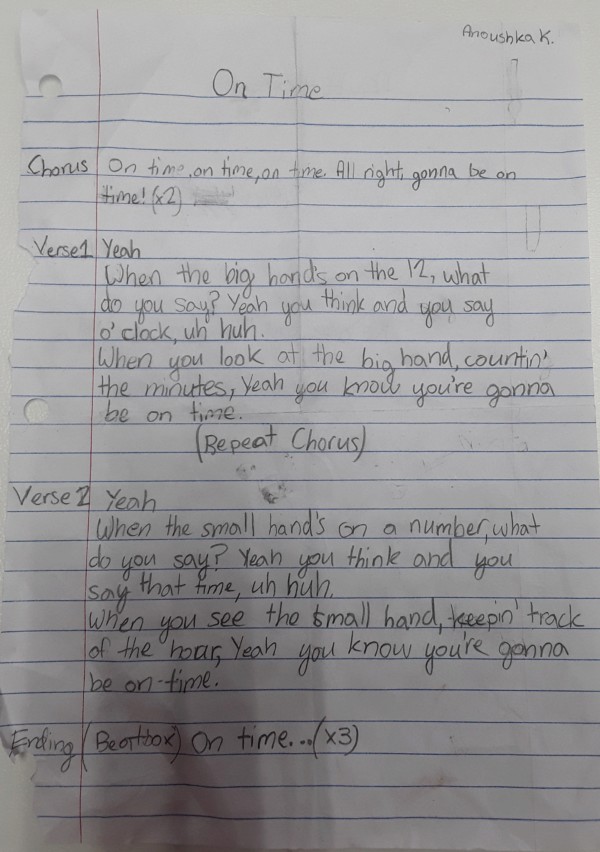 Anoushka K.
On Time
Chorus On time, on time, on time. All right, gonna be on
time! (x2)
Verse1 Yeah
When the big hand's on the 12, what
do you say? Yeah you think and you say
o'clock, uh huh.
When you look at the big hand, countin'
the minutes, Yeah you know you're gonna
be on time.
(Repeat Chorus)
Verse 2 Yeah
When the small hand's on a number, what
do you say? Yeah you think and you
say that time, uh huh.
When you see the small hand, keepin' track
of the hour, Yeah you know you're gonna
be on-time.
Ending (Beatbox) On time... (x3)